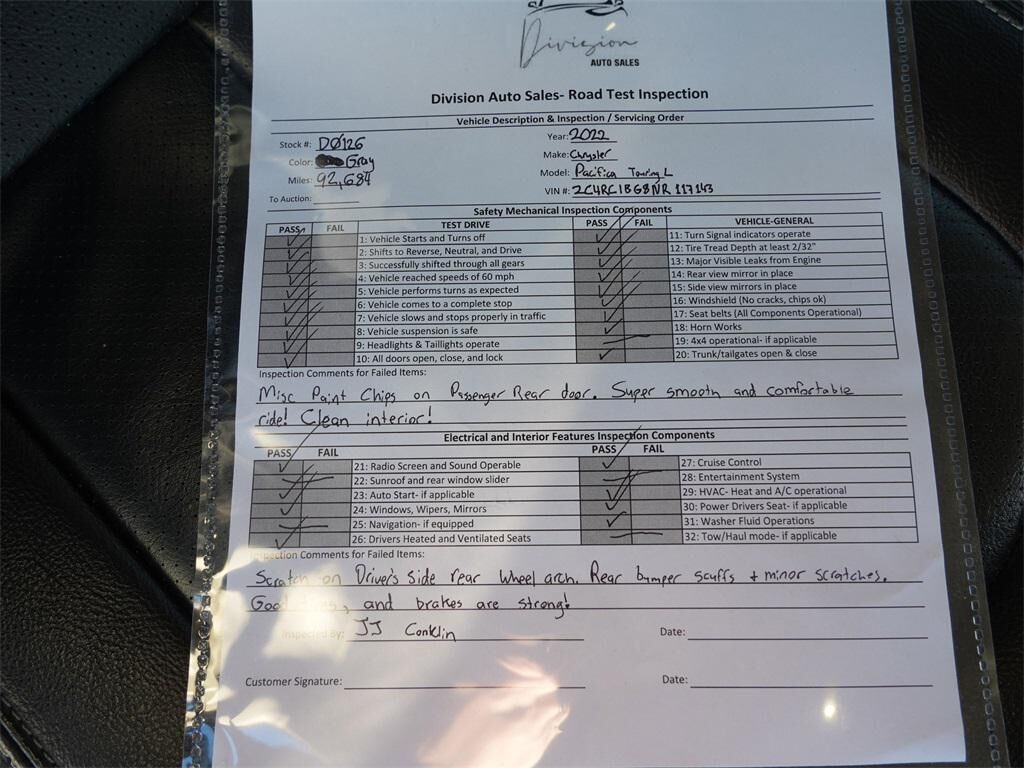 Division
AUTO SALES
Division Auto Sales- Road Test Inspection
Vehicle Description & Inspection / Servicing Order
Stock #: DØ126 Year: 2022
Color: Gray Make: Chrysler
Miles: 92,684 Model: Pacifica Touring L
To Auction: VIN #: 2C4RC1BG8NR117143
Safety Mechanical Inspection Components
PASS FAIL TEST DRIVE PASS FAIL VEHICLE-GENERAL
1: Vehicle Starts and Turns off 11: Turn Signal indicators operate
2: Shifts to Reverse, Neutral, and Drive 12: Tire Tread Depth at least 2/32"
3: Successfully shifted through all gears 13: Major Visible Leaks from Engine
4: Vehicle reached speeds of 60 mph 14: Rear view mirror in place
5: Vehicle performs turns as expected 15: Side view mirrors in place
6: Vehicle comes to a complete stop 16: Windshield (No cracks, chips ok)
7: Vehicle slows and stops properly in traffic 17: Seat belts (All Components Operational)
8: Vehicle suspension is safe 18: Horn Works
9: Headlights & Taillights operate 19: 4x4 operational- if applicable
10: All doors open, close, and lock 20: Trunk/tailgates open & close
Inspection Comments for Failed Items:
Misc Paint Chips on Passenger Rear door. Super smooth and comfortable
ride! Clean interior!
Electrical and Interior Features Inspection Components
PASS FAIL PASS FAIL
21: Radio Screen and Sound Operable 27: Cruise Control
22: Sunroof and rear window slider 28: Entertainment System
23: Auto Start- if applicable 29: HVAC- Heat and A/C operational
24: Windows, Wipers, Mirrors 30: Power Drivers Seat- if applicable
25: Navigation- if equipped 31: Washer Fluid Operations
26: Drivers Heated and Ventilated Seats 32: Tow/Haul mode- if applicable
Inspection Comments for Failed Items:
Scratch on Driver's Side rear wheel arch. Rear bumper scuffs + minor scratches.
Good and brakes are strong!
Inspected By: JJ Conklin Date:
Customer Signature: Date: